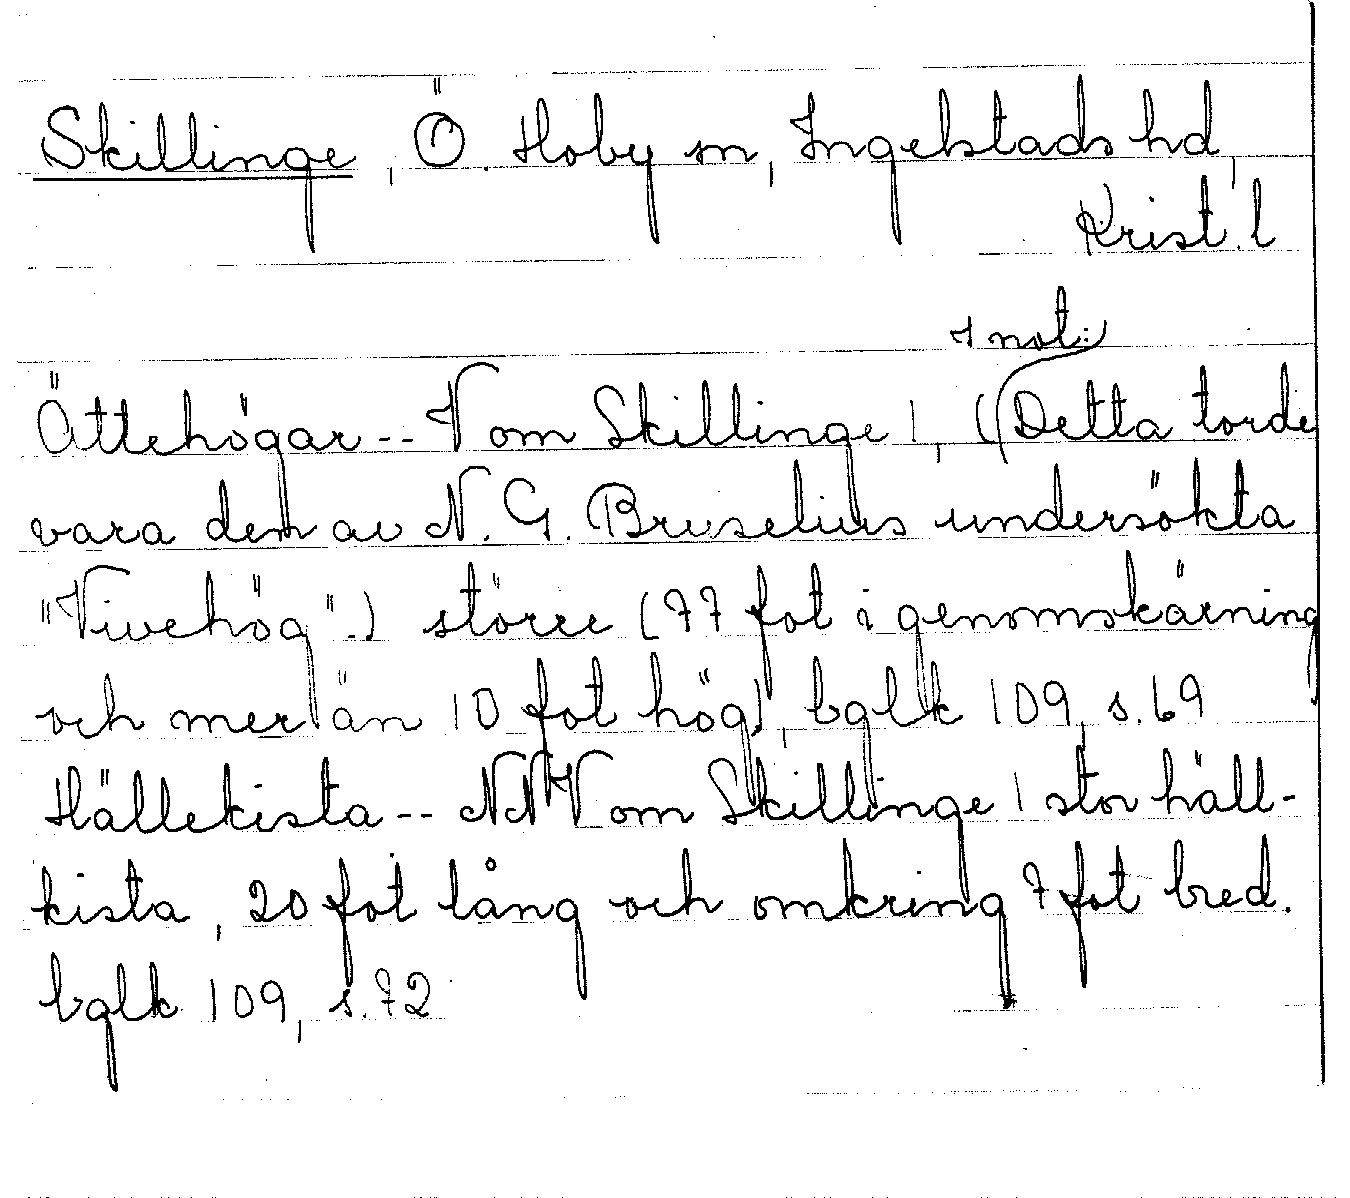 Skillinge, Ö. Hoby sn, Ingelstads hd,
Krist. l
I not:
Ättehögar -- V om Skillinge 1, (Detta torde
vara den av N. G. Bruselius undersökta
"Vivehög".) större (77 fot i genomskärning
och mer än 10 fot hög), bglk 109, s. 69
Hällekista -- NNV om Skillinge 1 stor häll-
kista, 20 fot lång och omkring 7 fot bred.
bglk 109, s. 72